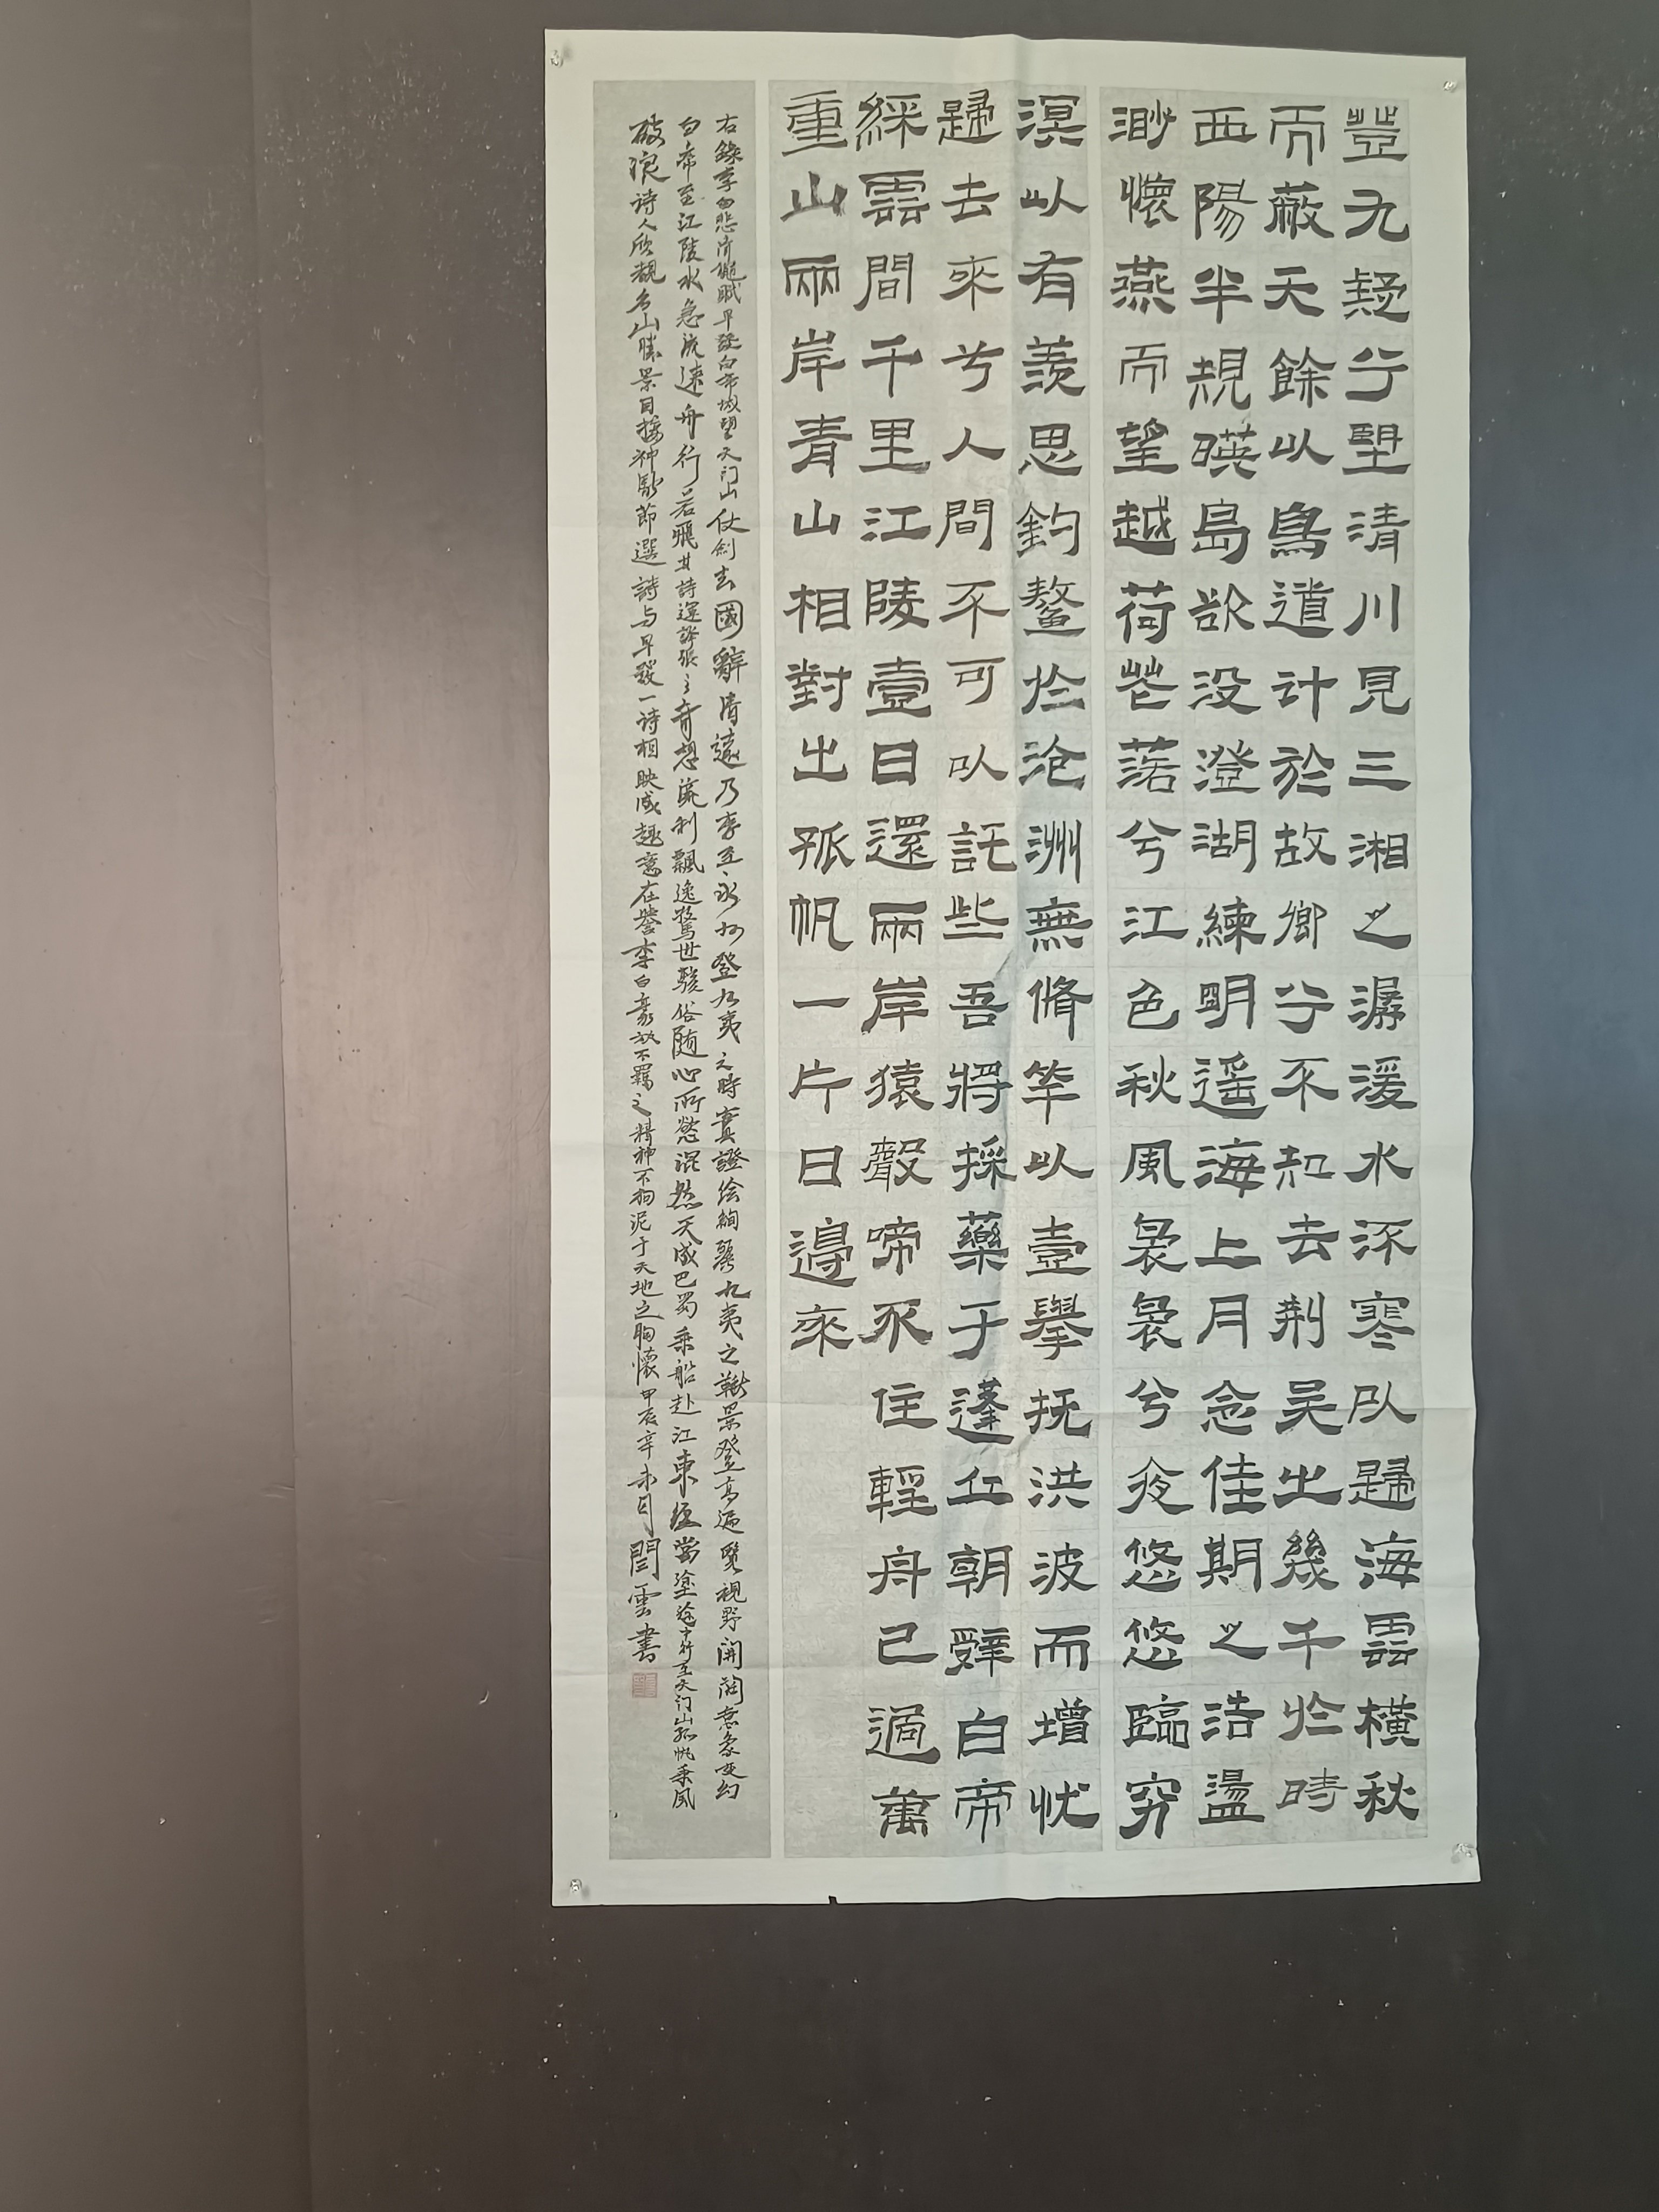 登九疑兮望清川見三湘之潺湲水流寒以歸海雲橫秋
而蔽天余以鳥道計於故鄉兮不知去荊吳之幾千於時
西陽半規映島欲没澄湖練明遥海上月念佳期之浩盪
渺懷燕而望越荷花落兮江色秋風裊裊兮夜悠悠臨窮
溟以有羨思釣鰲於滄洲無脩竿以壹舉撫洪波而增忧
歸去來兮人間不可以託些吾將採藥于蓬丘朝辭白帝
綵雲間千里江陵壹日還兩岸猿聲啼不住輕舟已過萬
重山兩岸青山相對出孤帆一片日邊來
右錄李白悲清秋賦早發白帝城望天门山仗劍去國辭清遠乃李至永州登九夷之時實證绘絢麗九夷之獻景登高遍覽視野開闊意象变幻
白帝至江陵水急流速舟行若飛其詩運誇張之奇想流利飄逸驚世駭俗随心所慾混然天成巴蜀乘船赴江東经當塗途中行至天门山孤帆乘風
破浪诗人欣観名山勝景目接神馳節選詩与早發一诗相映成趣意在譽李白豪放不羈之精神不拘泥于天地之胸懷甲辰辛未月閆雲書